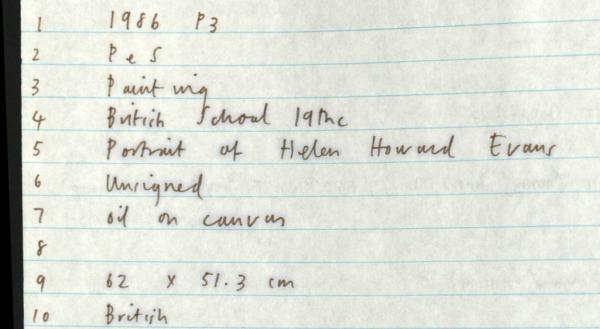 1 1986 P3
2 P e S
3 Painting
4 British School 19thc
5 Portrait of Helen Howard Evans
6 Unsigned
7 oil on canvas
8
9 62 x 51.3 cm
10 British